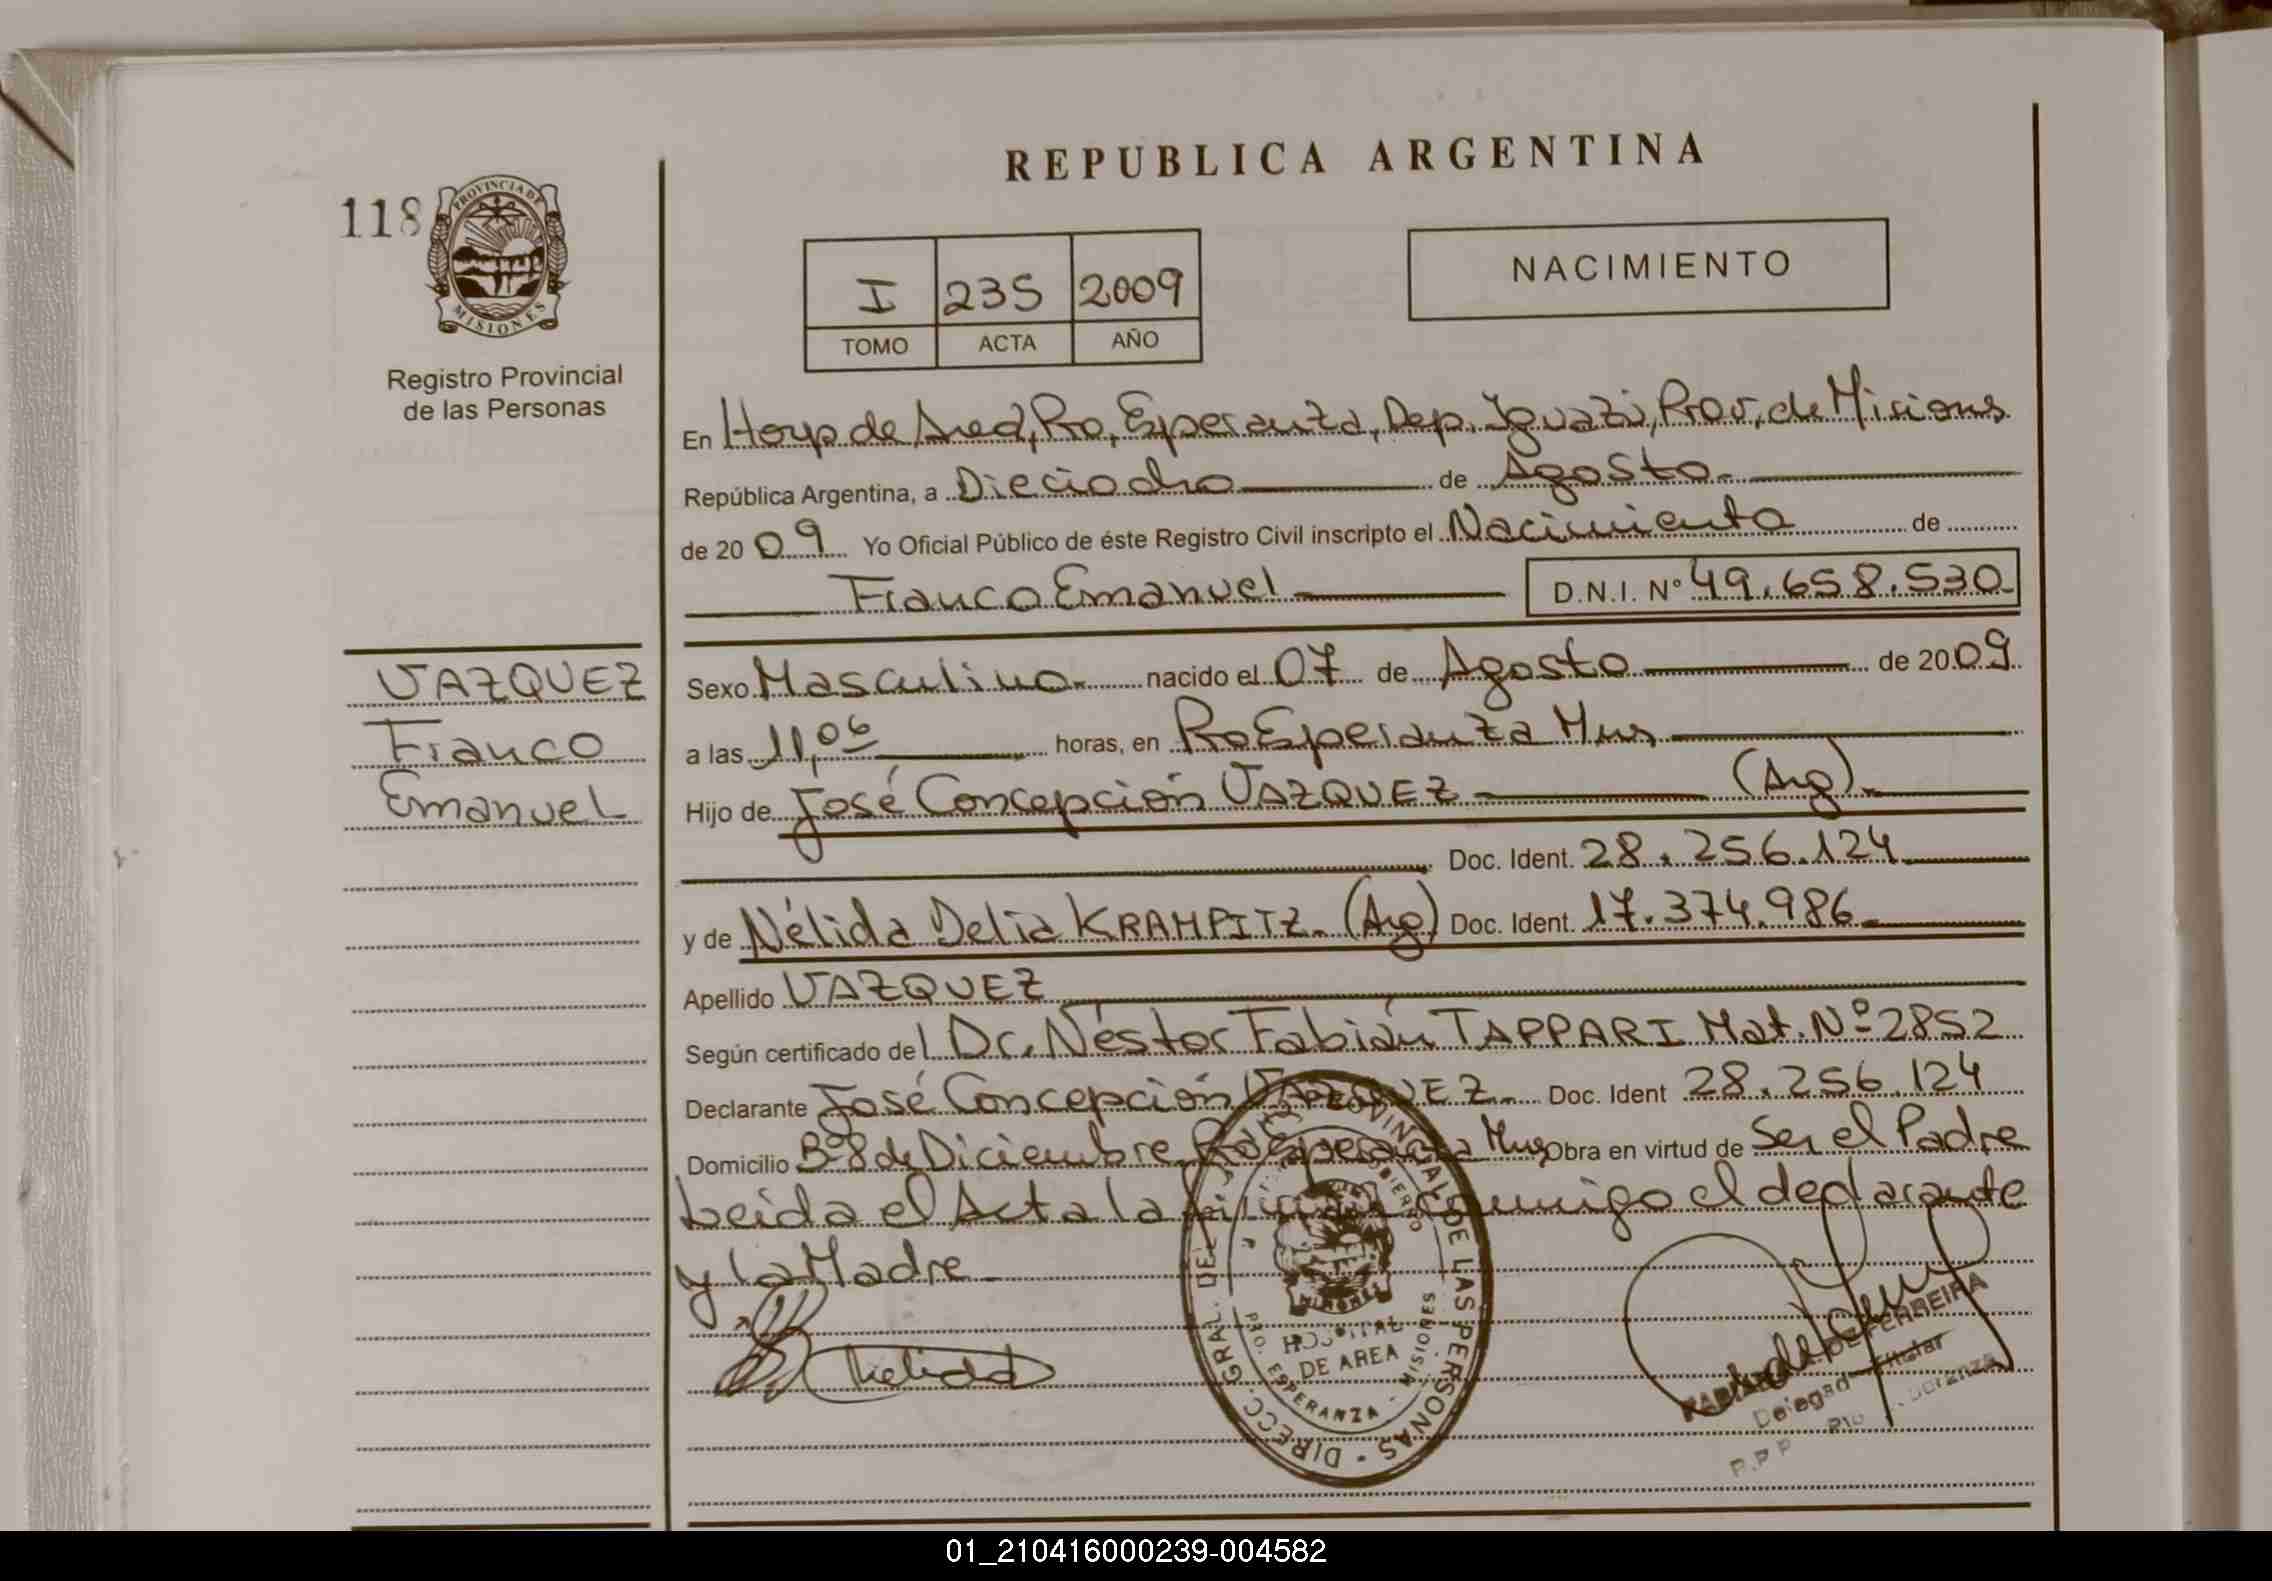 REPUBLICA ARGENTINA
118
PROVINCIA DE
MISIONES
Registro Provincial
de las Personas
I 235 2009
TOMO ACTA AÑO
NACIMIENTO
En Hosp de Area, Pto, Esperanza, Dep. Iguazú, Prov. de Misiones
República Argentina, a Dieciocho de Agosto.
de 20 09 Yo Oficial Público de éste Registro Civil inscripto el Nacimiento de
Franco Emanuel D.N.I. Nº 49.658.530
VAZQUEZ
Franco
Emanuel
Sexo Masculino. nacido el 07 de Agosto de 2009
a las 11,06 horas, en Pto Esperanza Mnes
Hijo de José Concepción VAZQUEZ (Arg).
Doc. Ident. 28.256.124
y de Nélida Delia KRAMPITZ. (Arg) Doc. Ident. 17.374.986
Apellido VAZQUEZ
Según certificado del Dr. Néstor Fabián TAPPARI Mat. Nº 2852
Declarante José Concepción VAZQUEZ. Doc. Ident 28.256.124
Domicilio Bº 8 de Diciembre Pto Esperanza Mnes Obra en virtud de Ser el Padre
Leida el Acta la firman conmigo el declarante
y la Madre
Nelida
DIRECC. GRAL. DEL PROVINCIAL DE LAS PERSONAS
HOSPITAL
DE AREA
PTO. ESPERANZA - MISIONES
DE FERREIRA
Titular
R.P.P.
01_210416000239-004582